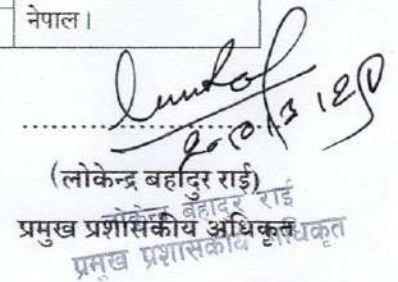 नेपाल।
(लोकेन्द्र बहादुर राई)
प्रमुख प्रशासकीय अधिकृत
लोकेन्द्र बहादुर राई
प्रमुख प्रशासकीय अधिकृत